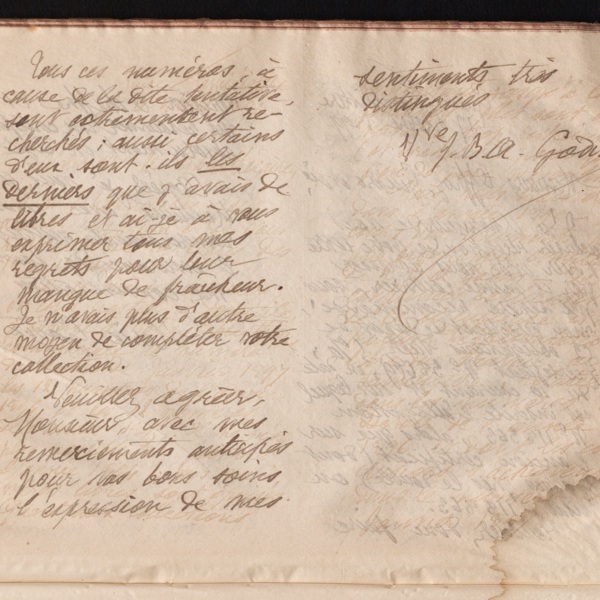 Tous ces numéros, à
cause de la dite tentative,
sont extrêmement re-
cherchés; aussi certains
d'eux sont-ils les
derniers que j'avais de
libres et ai-je à vous
exprimer tous mes
regrets pour leur
manque de fraicheur.
Je n'avais plus d'autre
moyen de compléter votre
collection.
Veuillez agréer,
Monsieur, avec mes
remerciements anticipés
pour vos bons soins
l'expression de mes
sentiments très
distingués
Vve J. Bte. Godi